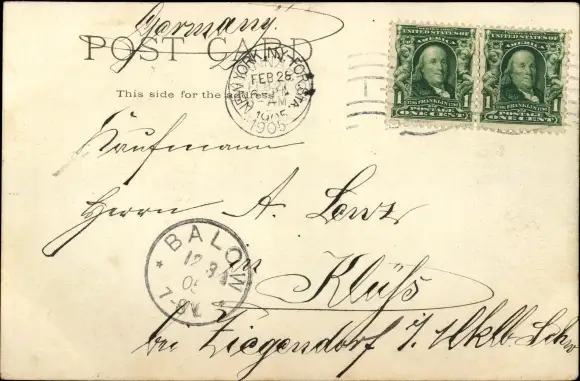 Germany
POST CARD
This side for the address
NEW YORK, N.Y. FOR. STA.
FEB 28
AM
1905
1905
UNITED STATES OF AMERICA
1 FRANKLIN 1
POSTAGE
ONE CENT
UNITED STATES OF AMERICA
1 FRANKLIN 1
POSTAGE
ONE CENT
Kaufmann
Herrn A. Lenz
BALOW
12 3
05
in Klüß
bei Ziegendorf i/ Mklb. Schw